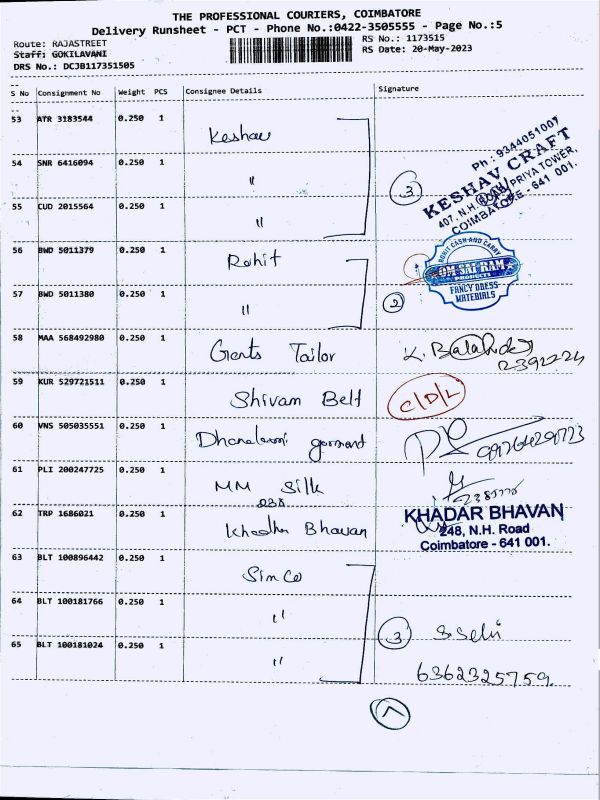 THE PROFESSIONAL COURIERS, COIMBATORE
Delivery Runsheet - PCT - Phone No.:0422-3505555 - Page No.:5
Route: RAJASTREET
RS No.: 1173515
Staff: GOKILAVANI
RS Date: 20-May-2023
DRS No.: DCJB117351505
S No Consignment No Weight PCS Consignee Details Signature
53 ATR 3183544 0.250 1 Keshav
Ph : 9344051007
KESHAV CRAFT
407, N.H. PRIYA TOWER,
COIMBATORE - 641 001.
54 SNR 6416094 0.250 1 "
3
55 CUD 2015564 0.250 1 "
56 BWD 5011379 0.250 1 Rohit
ROHIT CASH AND CARRY
OM SAI RAM
PRODUCTS
FANCY DRESS
MATERIALS
57 BWD 5011380 0.250 1 "
2
58 MAA 568492980 0.250 1 Gents Tailor
59 KUR 529721511 0.250 1 Shivam Belt C/D/L
60 VNS 505035551 0.250 1 Dhanalaxmi garment
61 PLI 200247725 0.250 1 MM Silk
238
62 TRP 1686021 0.250 1 Khadhar Bhavan
KHADAR BHAVAN
248, N.H. Road
Coimbatore - 641 001.
63 BLT 100896442 0.250 1 Simco
64 BLT 100181766 0.250 1 "
3 S. Selvi
65 BLT 100181024 0.250 1 "
6362325759.